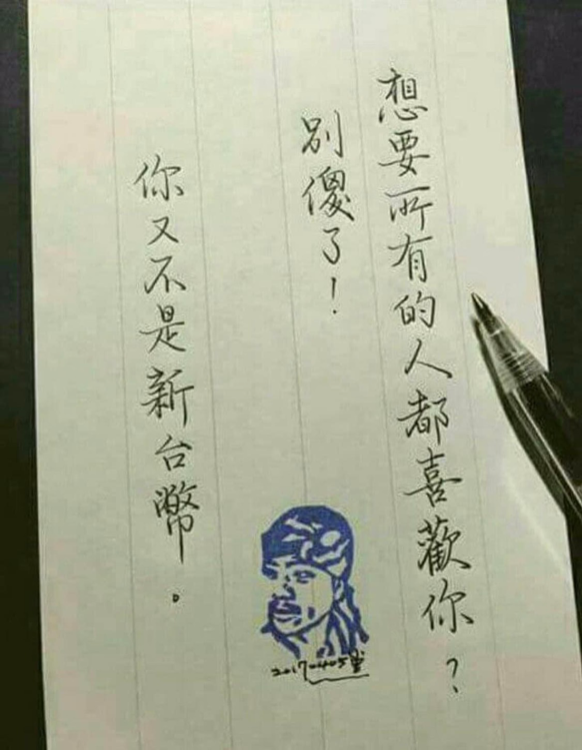 想要所有的人都喜歡你？
別傻了！
你又不是新台幣。
20170405